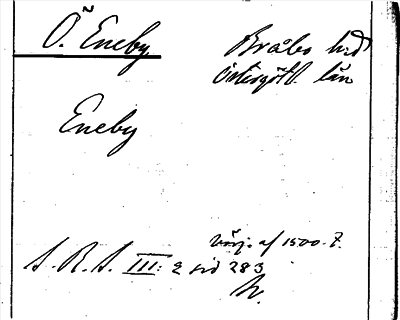 Ö. Eneby
Bråbo hd
Östergötl. län
Eneby
börj. af 1500-t.
S. R. S. III: 2 sid 283